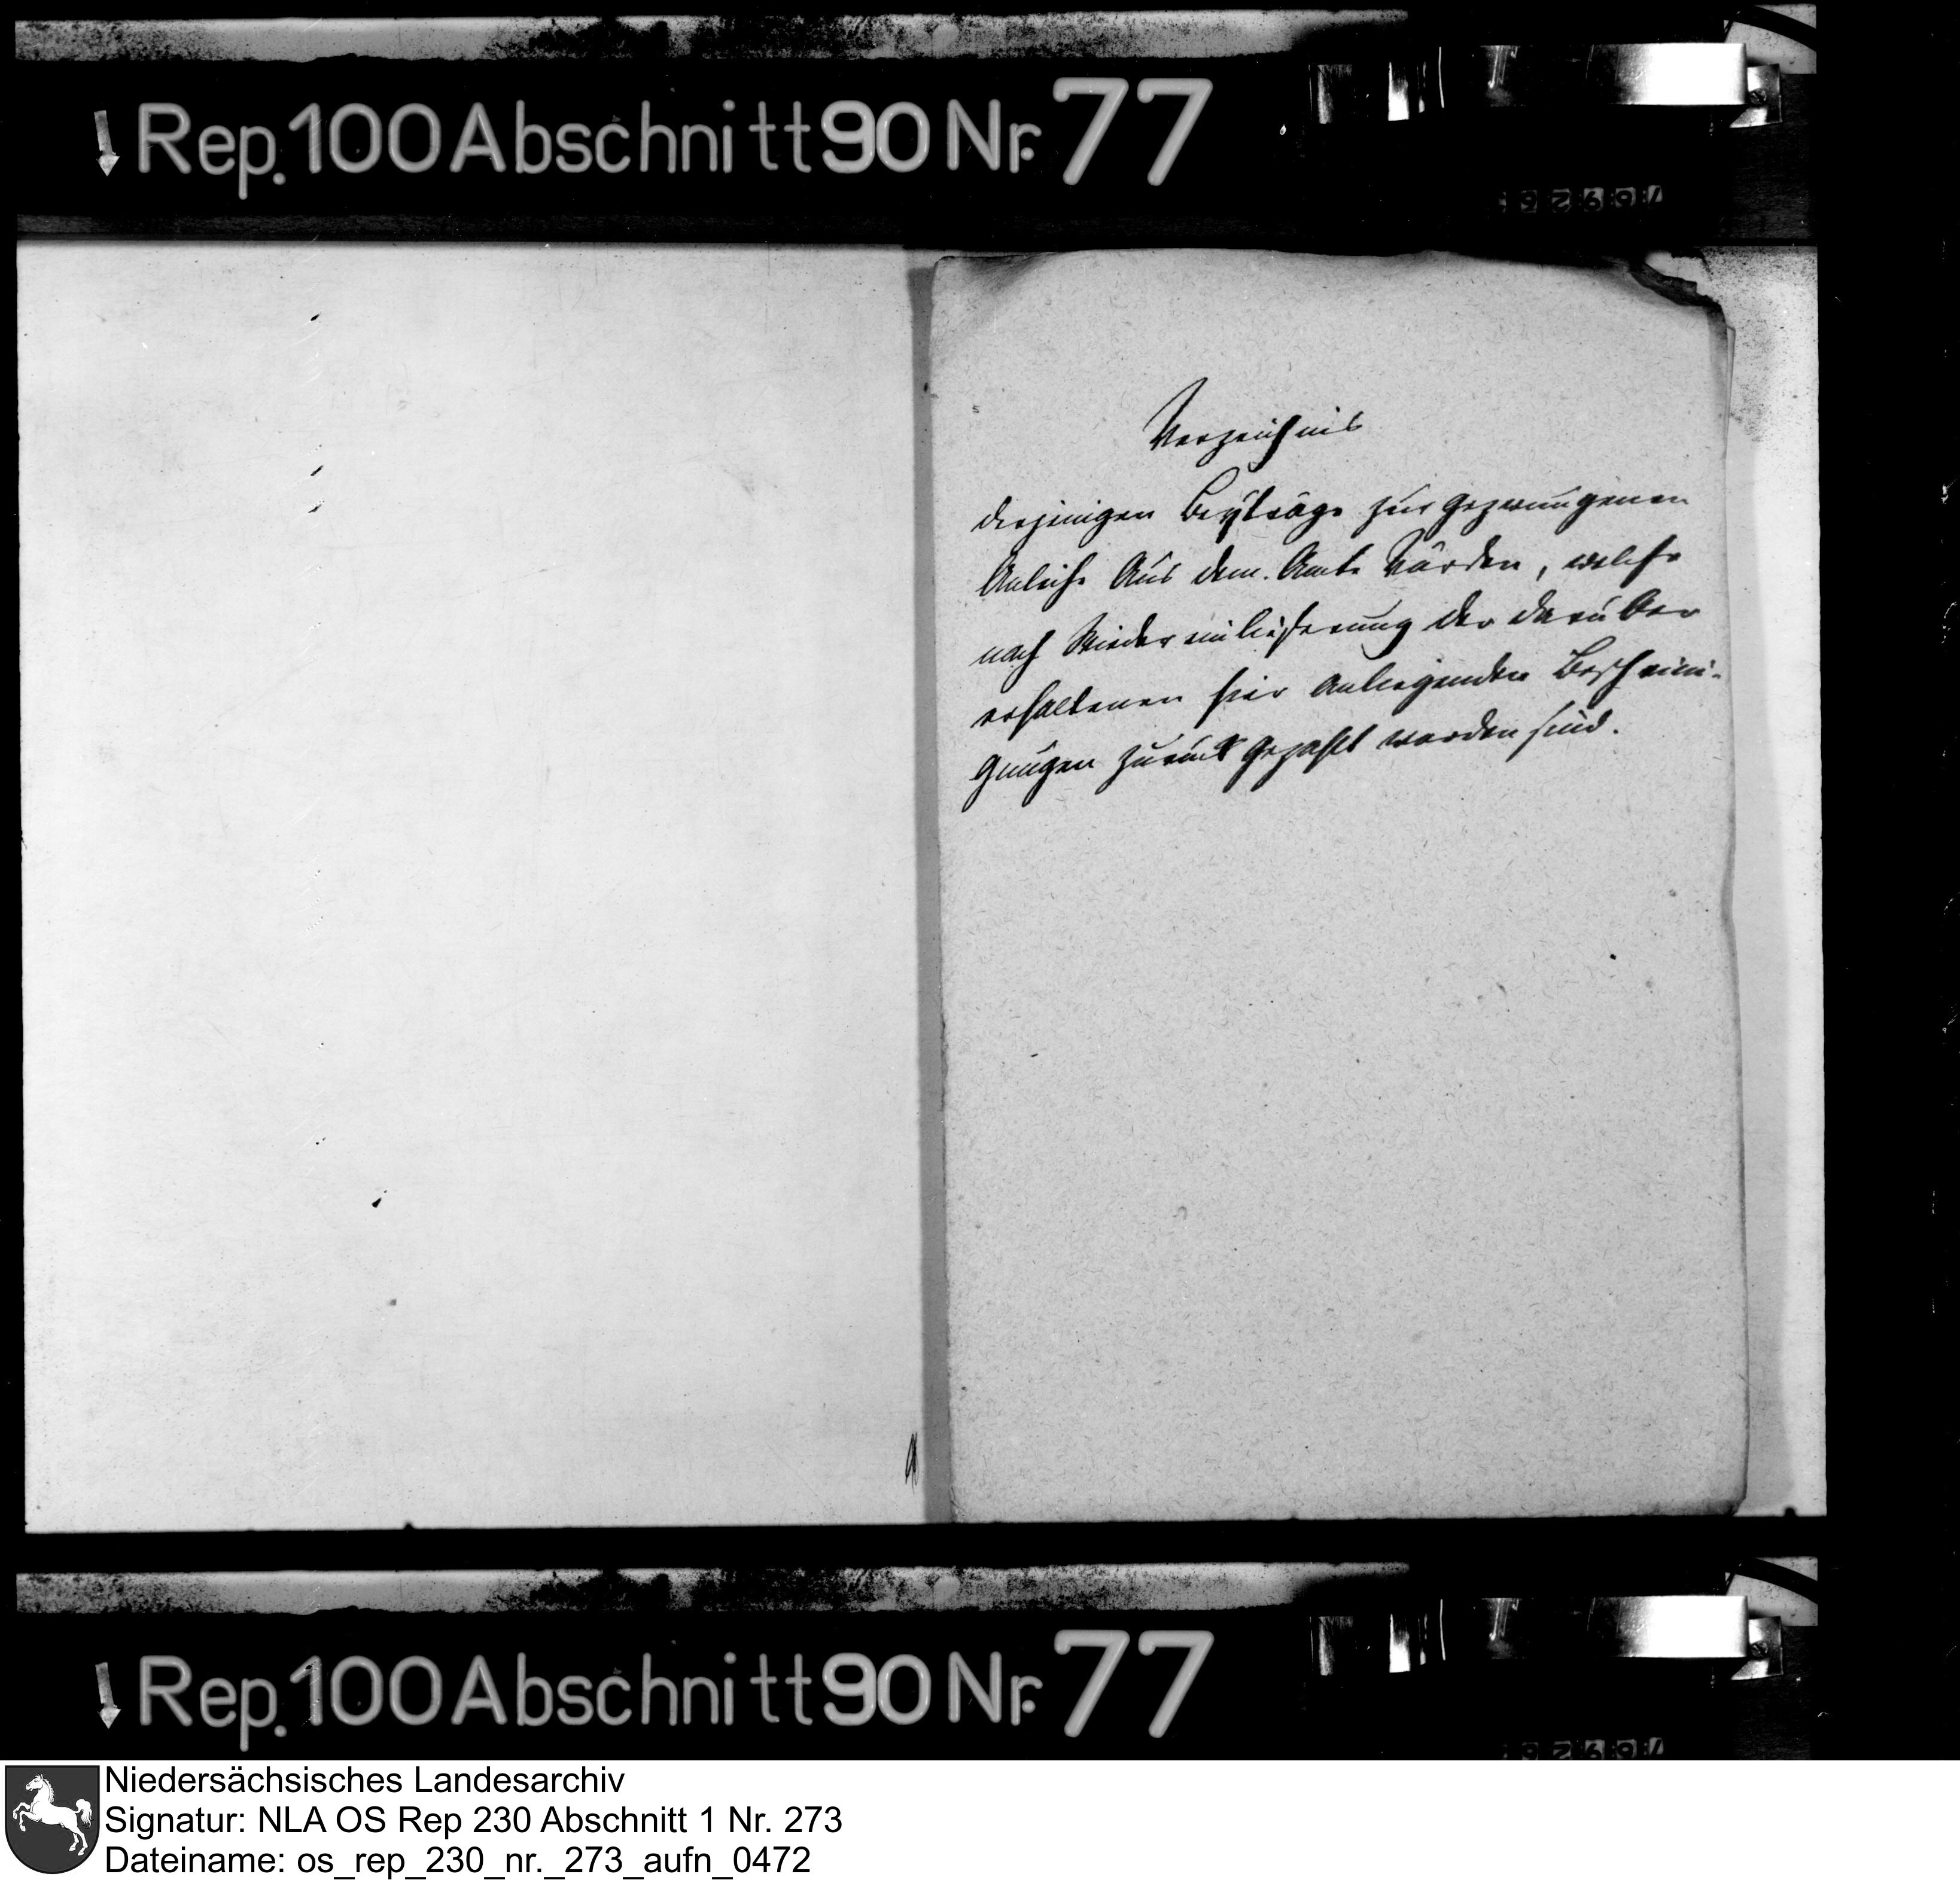 Rep. 100 Abschnitt 90 Nr. 77
Verzeichnis
derjenigen Beyträge zur gezwungenen
Anleihe Aus dem Amte Vörden, welche
nach Wiedereinlieferung der darüber
erhaltenen hier Anliegenden Bescheini-
gungen zurück gezahlt worden sind.
Rep. 100 Abschnitt 90 Nr. 77
Niedersächsisches Landesarchiv
Signatur: NLA OS Rep 230 Abschnitt 1 Nr. 273
Dateiname: os_rep_230_nr._273_aufn_0472